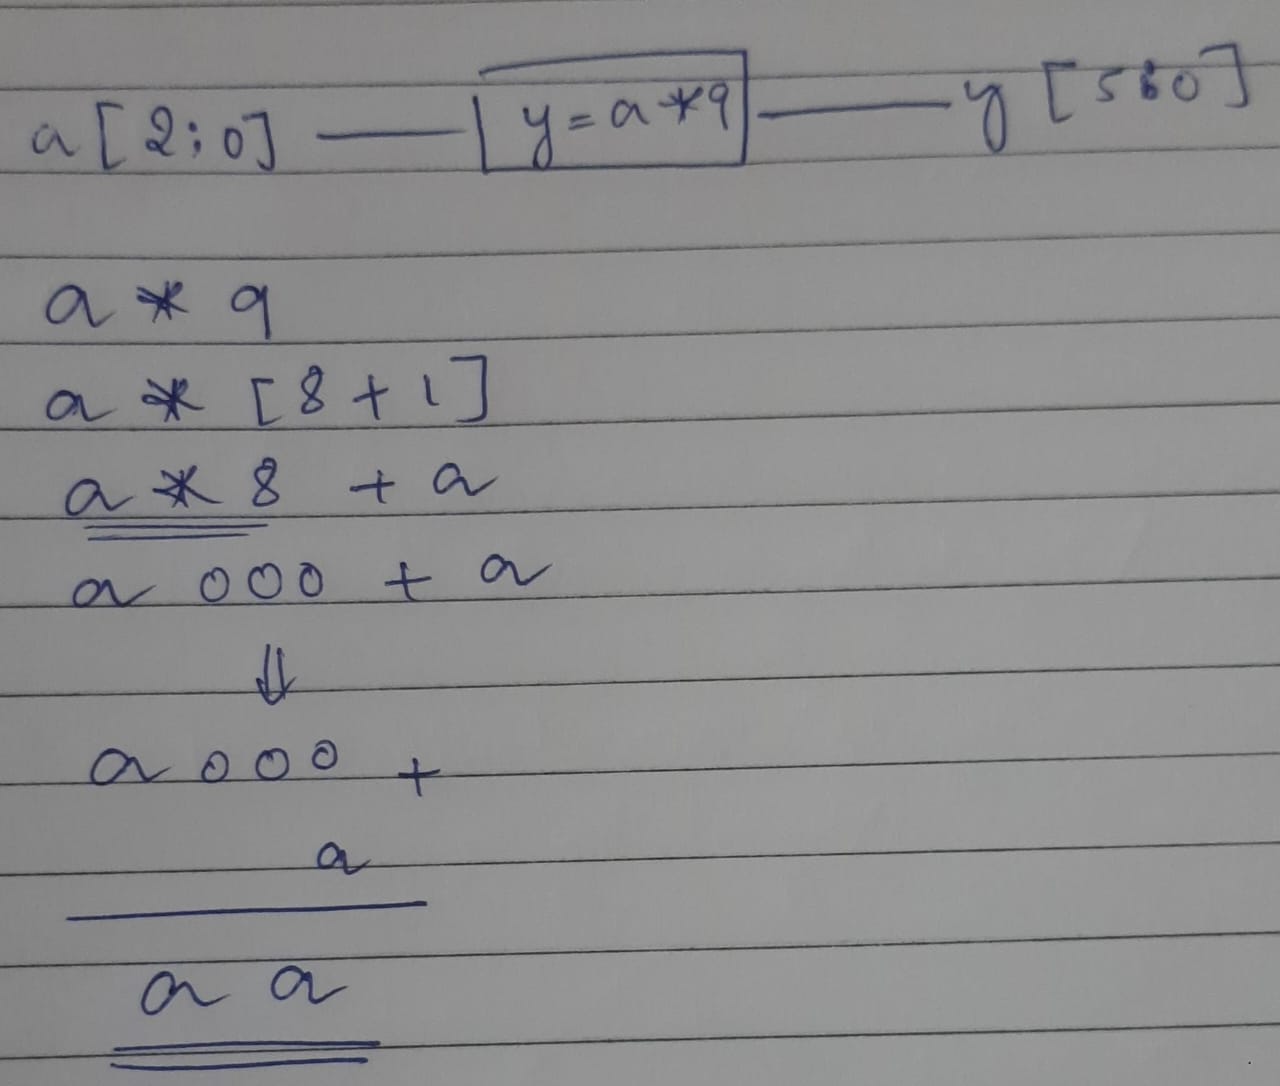 a[2:0] y=a*9 y[5:0]
a * 9
a * [8+1]
a * 8 + a
a 000 + a
⇓
a 000 +
a
a a